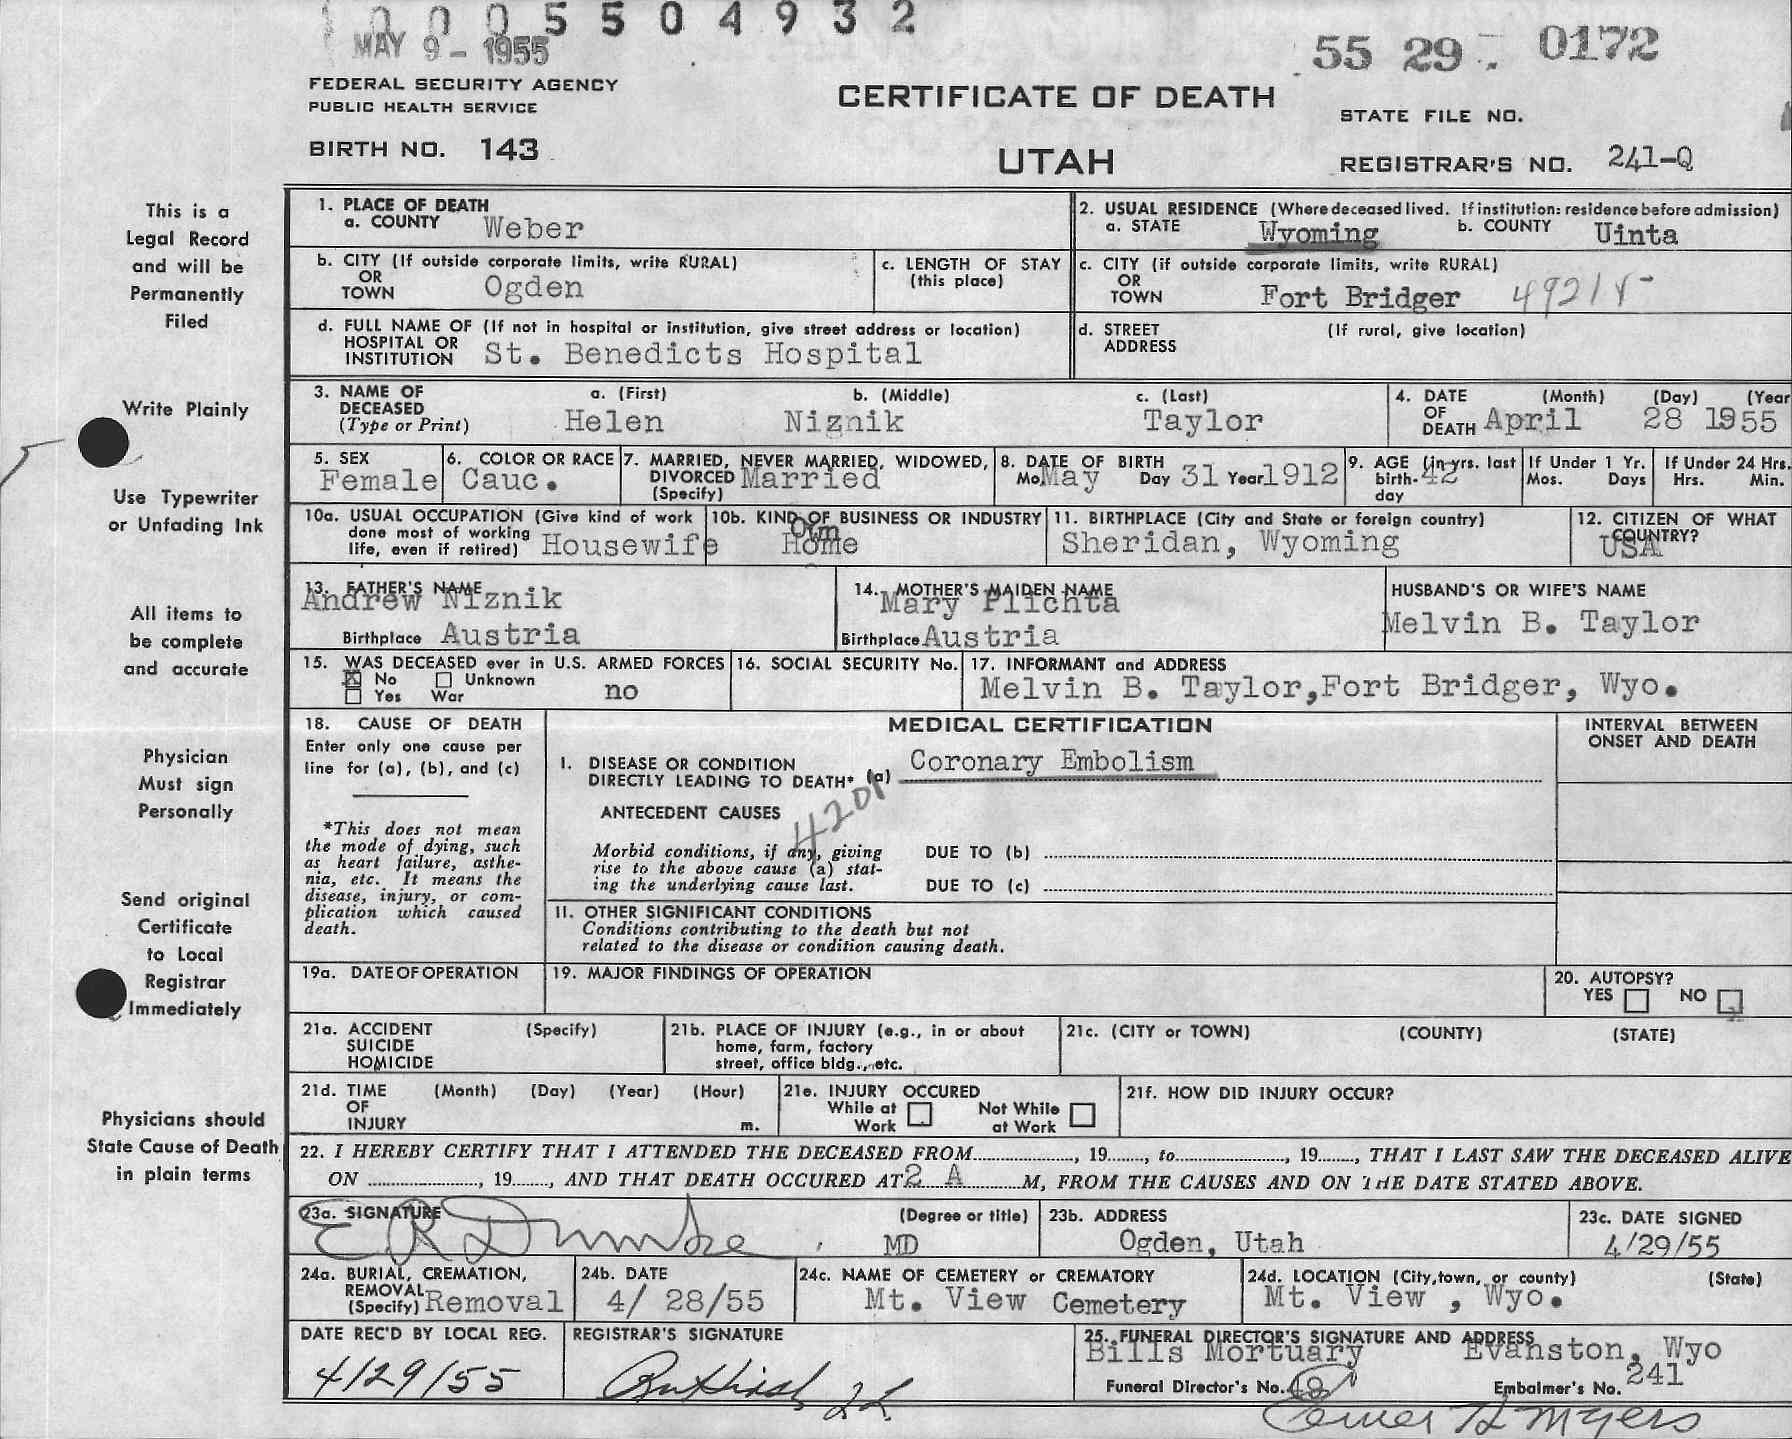 1 0 0 0 5 5 0 4 9 3 2
MAY 9 - 1955
55 29 . 0172
FEDERAL SECURITY AGENCY
PUBLIC HEALTH SERVICE
CERTIFICATE OF DEATH
STATE FILE NO.
BIRTH NO. 143
UTAH
REGISTRAR'S NO. 241-Q
This is a
Legal Record
and will be
Permanently
Filed
Write Plainly
Use Typewriter
or Unfading Ink
All items to
be complete
and accurate
Physician
Must sign
Personally
Send original
Certificate
to Local
Registrar
Immediately
Physicians should
State Cause of Death
in plain terms
1. PLACE OF DEATH
a. COUNTY Weber
2. USUAL RESIDENCE (Where deceased lived. If institution: residence before admission)
a. STATE Wyoming b. COUNTY Uinta
b. CITY (If outside corporate limits, write RURAL)
OR
TOWN Ogden
c. LENGTH OF STAY
(this place)
c. CITY (if outside corporate limits, write RURAL)
OR
TOWN Fort Bridger
d. FULL NAME OF (If not in hospital or institution, give street address or location)
HOSPITAL OR
INSTITUTION St. Benedicts Hospital
d. STREET (If rural, give location)
ADDRESS
3. NAME OF a. (First) b. (Middle) c. (Last)
DECEASED
(Type or Print) Helen Niznik Taylor
4. DATE (Month) (Day) (Year
OF
DEATH April 28 1955
5. SEX
Female
6. COLOR OR RACE
Cauc.
7. MARRIED, NEVER MARRIED, WIDOWED,
DIVORCED Married
(Specify)
8. DATE OF BIRTH
Mo. May Day 31 Year 1912
9. AGE (in yrs. last
birth- 42
day
If Under 1 Yr.
Mos. Days
If Under 24 Hrs.
Hrs. Min.
10a. USUAL OCCUPATION (Give kind of work
done most of working
life, even if retired) Housewife
10b. KIND OF BUSINESS OR INDUSTRY
Own
Home
11. BIRTHPLACE (City and State or foreign country)
Sheridan, Wyoming
12. CITIZEN OF WHAT
COUNTRY?
USA
13. FATHER'S NAME
Andrew Niznik
Birthplace Austria
14. MOTHER'S MAIDEN NAME
Mary Plichta
Birthplace Austria
HUSBAND'S OR WIFE'S NAME
Melvin B. Taylor
15. WAS DECEASED ever in U.S. ARMED FORCES
X No Unknown
Yes War no
16. SOCIAL SECURITY No.
17. INFORMANT and ADDRESS
Melvin B. Taylor,Fort Bridger, Wyo.
18. CAUSE OF DEATH
Enter only one cause per
line for (a), (b), and (c)
*This does not mean
the mode of dying, such
as heart failure, asthe-
nia, etc. It means the
disease, injury, or com-
plication which caused
death.
MEDICAL CERTIFICATION
INTERVAL BETWEEN
ONSET AND DEATH
I. DISEASE OR CONDITION
DIRECTLY LEADING TO DEATH* (a) Coronary Embolism
ANTECEDENT CAUSES
Morbid conditions, if any, giving
rise to the above cause (a) stat-
ing the underlying cause last.
DUE TO (b)
DUE TO (c)
II. OTHER SIGNIFICANT CONDITIONS
Conditions contributing to the death but not
related to the disease or condition causing death.
19a. DATE OF OPERATION
19. MAJOR FINDINGS OF OPERATION
20. AUTOPSY?
YES NO
21a. ACCIDENT (Specify)
SUICIDE
HOMICIDE
21b. PLACE OF INJURY (e.g., in or about
home, farm, factory
street, office bldg., etc.
21c. (CITY or TOWN) (COUNTY) (STATE)
21d. TIME (Month) (Day) (Year) (Hour)
OF
INJURY m.
21e. INJURY OCCURED
While at Work Not While at Work
21f. HOW DID INJURY OCCUR?
22. I HEREBY CERTIFY THAT I ATTENDED THE DECEASED FROM............, 19......, to............, 19......, THAT I LAST SAW THE DECEASED ALIVE
ON ............, 19......, AND THAT DEATH OCCURED AT 2 A M, FROM THE CAUSES AND ON THE DATE STATED ABOVE.
23a. SIGNATURE (Degree or title)
E R Dumke MD
23b. ADDRESS
Ogden, Utah
23c. DATE SIGNED
4/29/55
24a. BURIAL, CREMATION,
REMOVAL
(Specify) Removal
24b. DATE
4/ 28/55
24c. NAME OF CEMETERY or CREMATORY
Mt. View Cemetery
24d. LOCATION (City, town, or county) (State)
Mt. View , Wyo.
DATE REC'D BY LOCAL REG.
4/29/55
REGISTRAR'S SIGNATURE
25. FUNERAL DIRECTOR'S SIGNATURE AND ADDRESS
Bills Mortuary Evanston, Wyo
Funeral Director's No. Embalmer's No. 241
Elmer H Myers